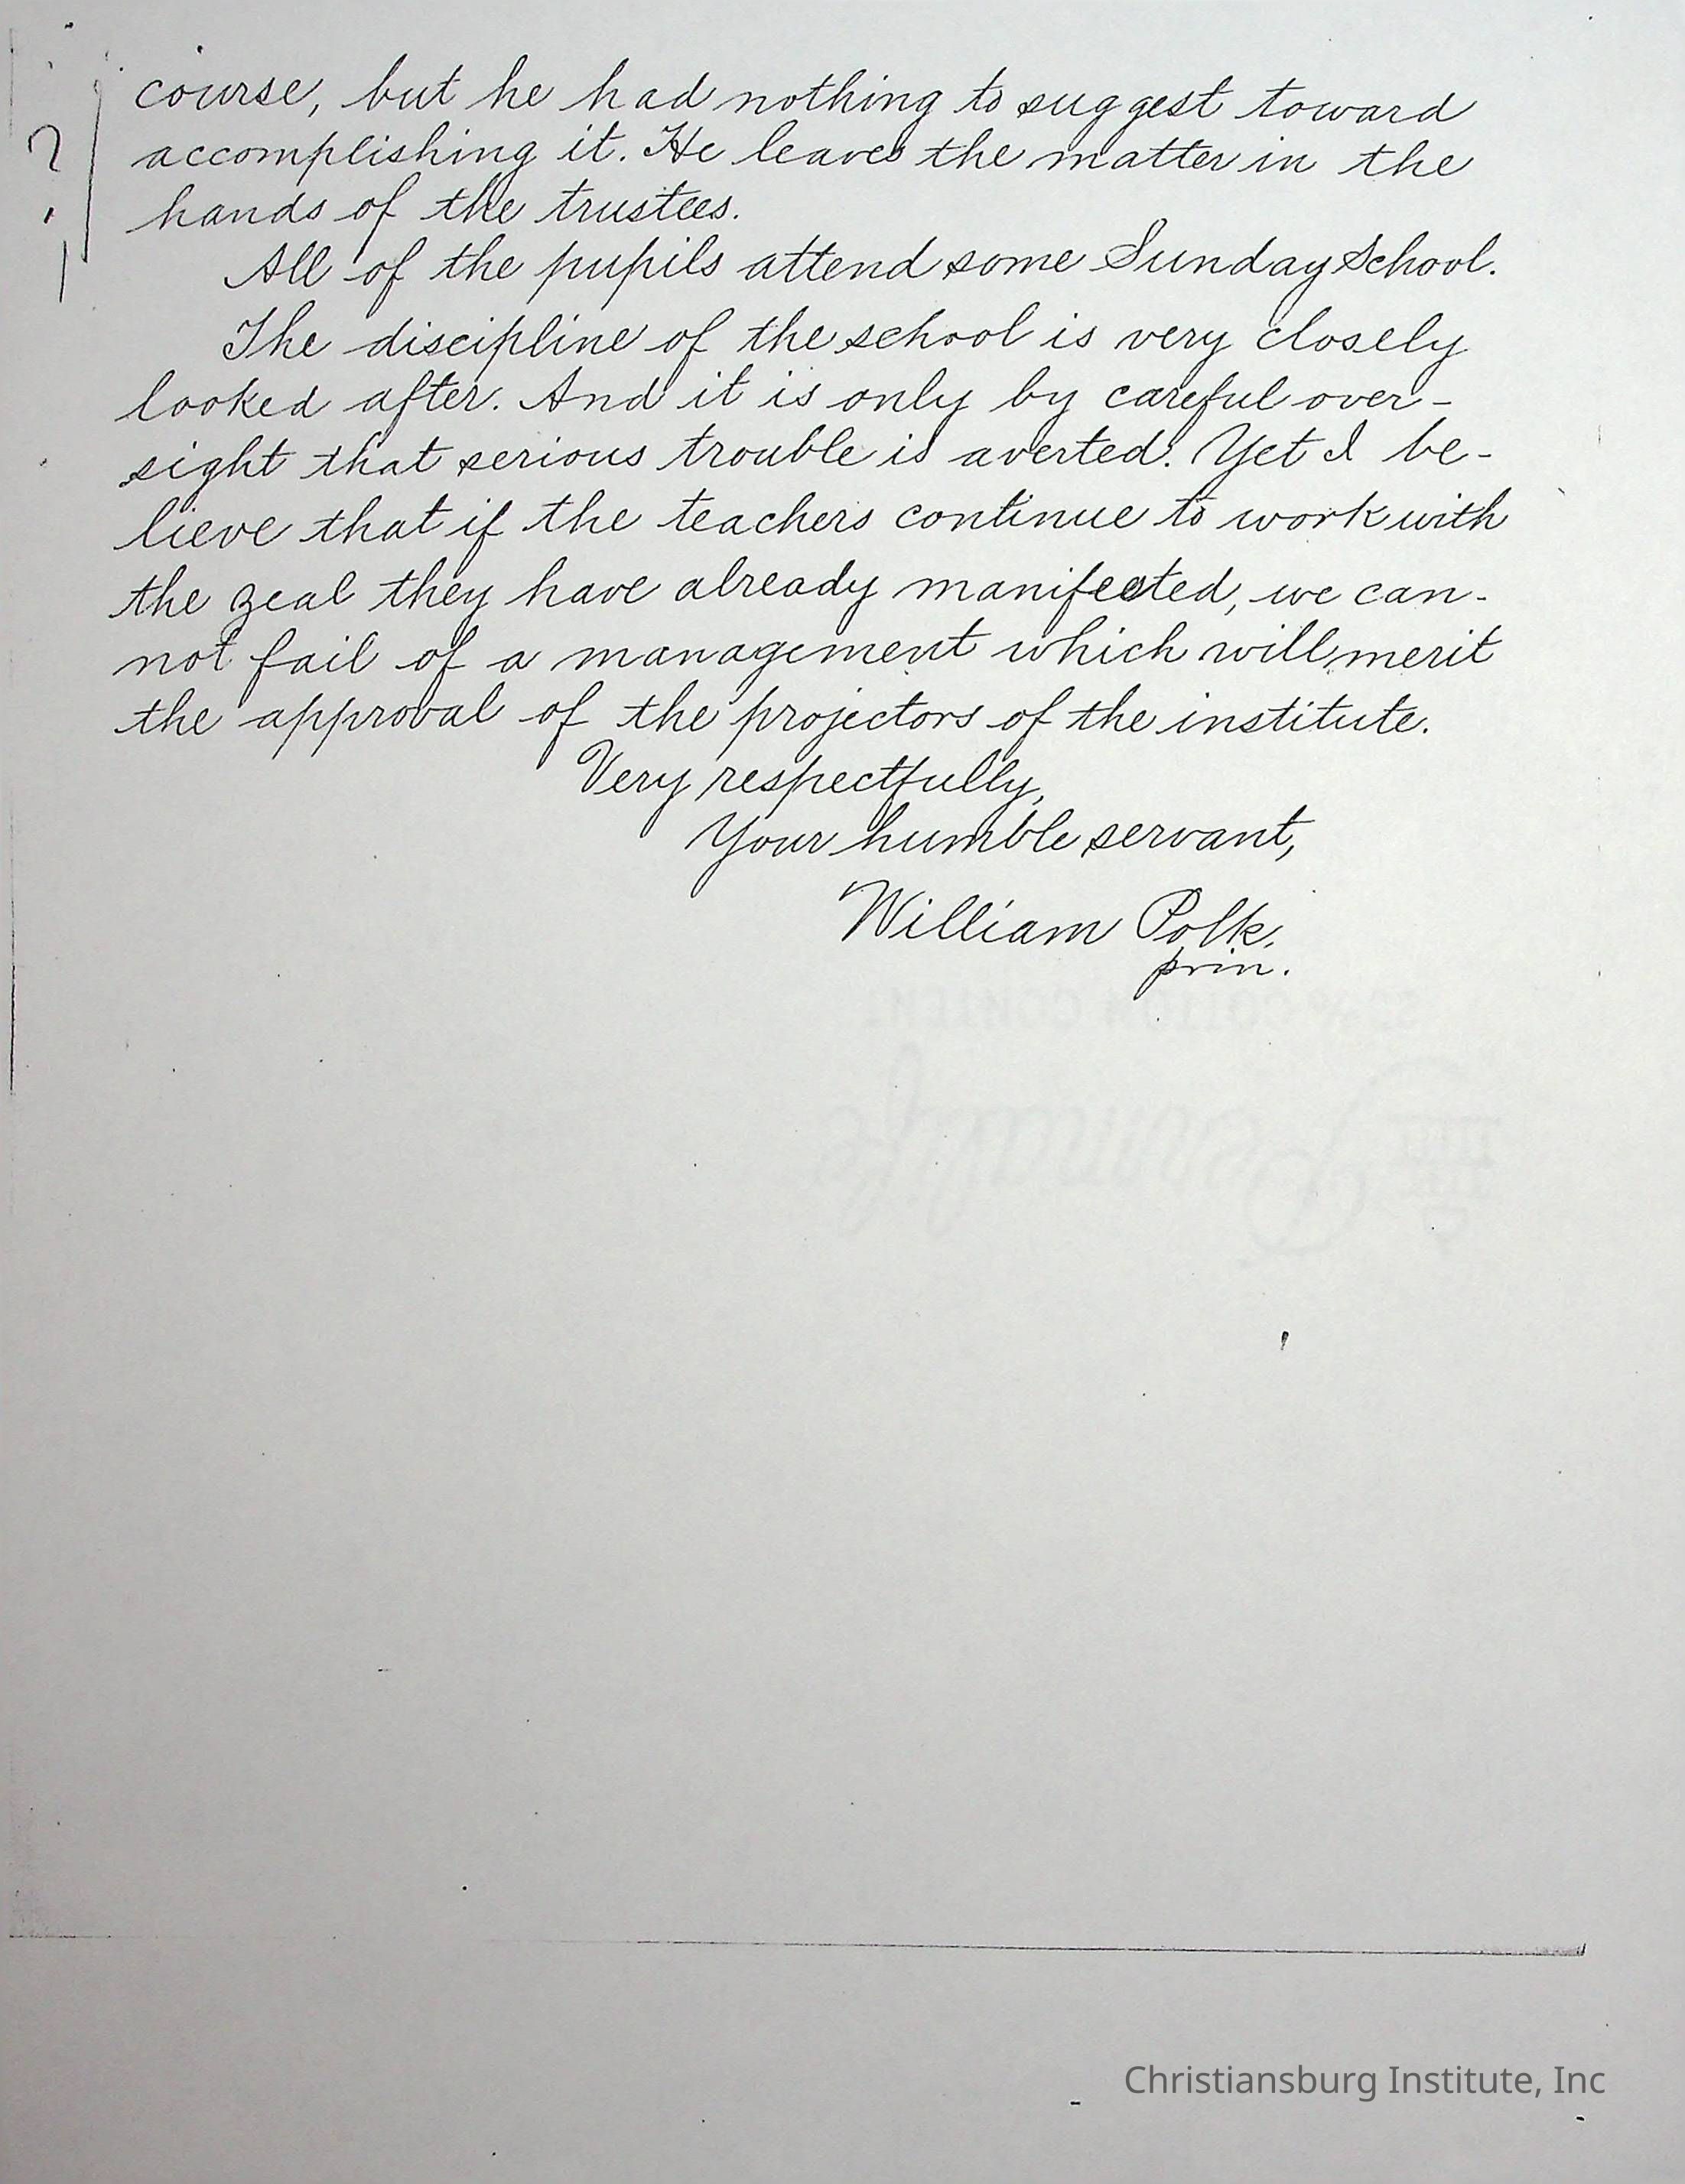 course, but he had nothing to suggest toward
accomplishing it. He leaves the matter in the
hands of the trustees.
All of the pupils attend some Sunday School.
The discipline of the school is very closely
looked after. And it is only by careful over-
sight that serious trouble is averted. Yet I be-
lieve that if the teachers continue to work with
the zeal they have already manifested, we can-
not fail of a management which will merit
the approval of the projectors of the institute.
Very respectfully,
Your humble servant,
William Polk.
prin.
?
Christiansburg Institute, Inc